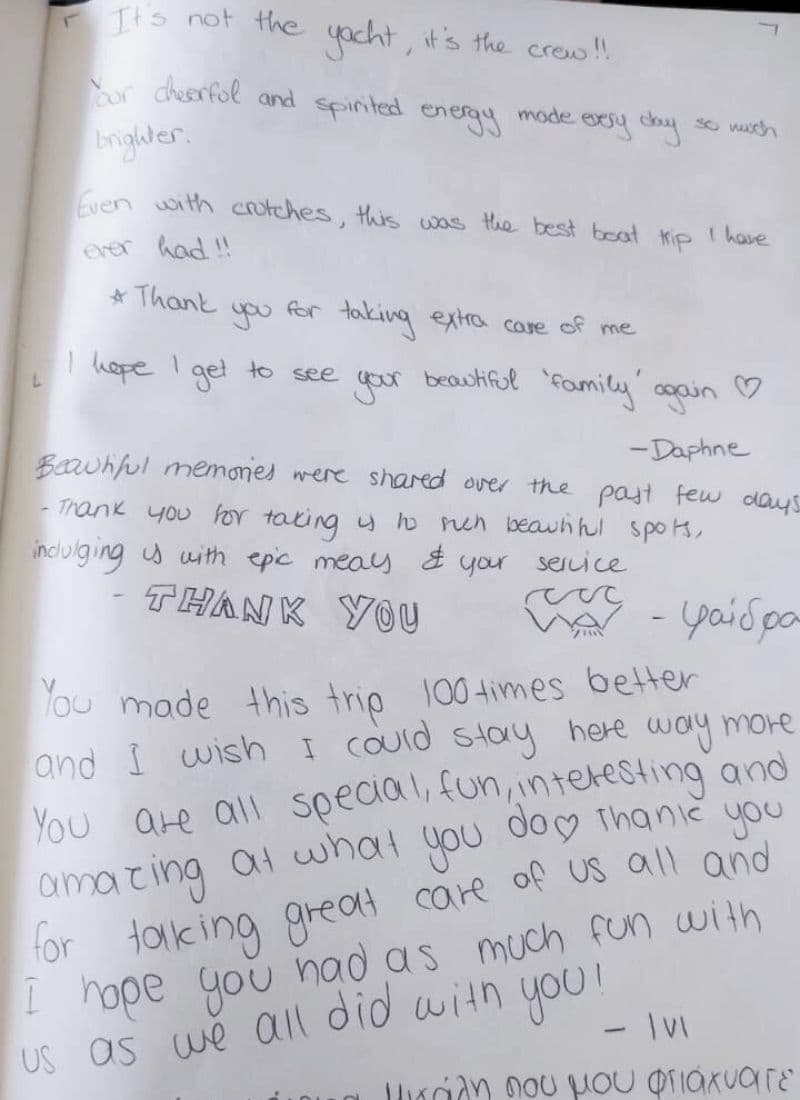 It's not the yacht, it's the crew!!
Your cheerful and spirited energy made every day so much
brighter.
Even with crutches, this was the best boat trip I have
ever had!!
* Thank you for taking extra care of me
I hope I get to see your beautiful 'family' again ♡
- Daphne
Beautiful memories were shared over the past few days
- Thank you for taking us to such beautiful spots,
indulging us with epic meals & your service
- THANK YOU - φαίδρα
You made this trip 100 times better
and I wish I could stay here way more
You are all special, fun, interesting and
amazing at what you do ♡ Thank you
for taking great care of us all and
I hope you had as much fun with
us as we all did with you!
- Ivi
που μου φτιάχνατε